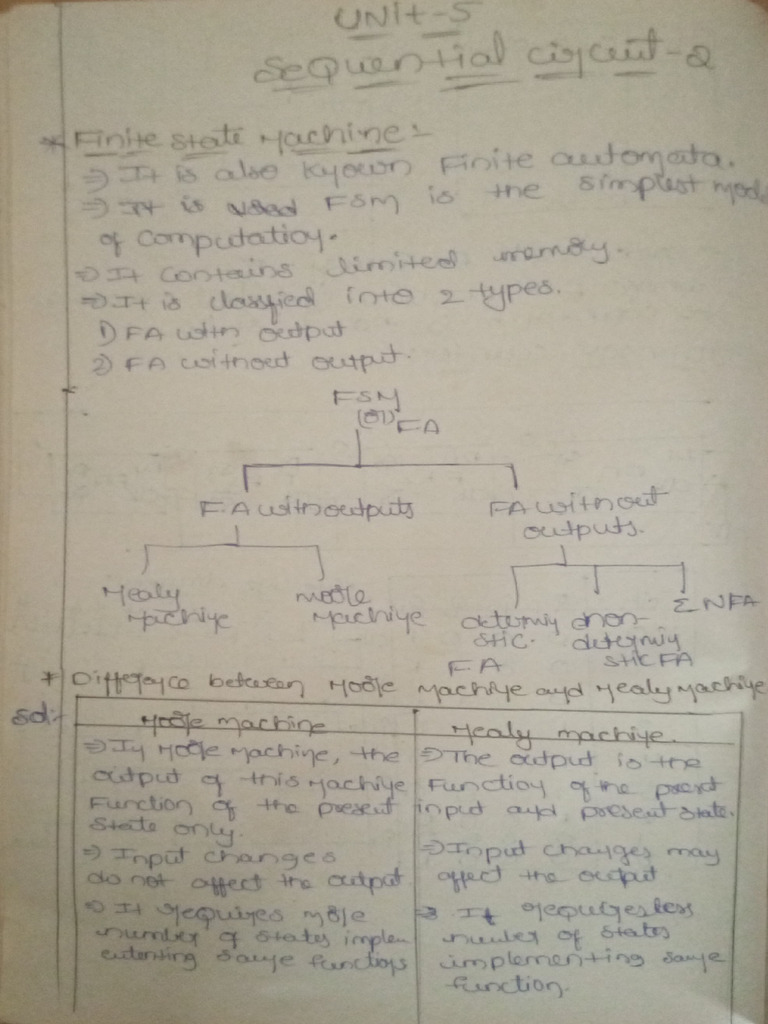 UNIT-5
Sequential circuit-2
* Finite state Machine:-
⇒ It is also known Finite automata.
⇒ It is used FSM is the simplest mode
of computation.
⇒ It contains limited memory.
⇒ It is classfied into 2 types.
1) FA with output
2) FA without output.
FSM
(or) FA
F.A with outputs
FA without
outputs.
Mealy
Machine
moore
Machine
determin
stic.
F.A
non-
determin
stic FA
Σ NFA
* Difference between Moore Machine and Mealy Machine
Sol:-
Moore machine
Mealy machine.
⇒ In Moore Machine, the
output of this Machine
Function of the present
state only.
⇒ The output is the
Function of the present
input and present state.
⇒ Input changes
do not affect the output
⇒ Input changes may
affect the output
⇒ It requires more
number of states implem
ententing same functions
⇒ It requires less
number of states
implementing same
function.